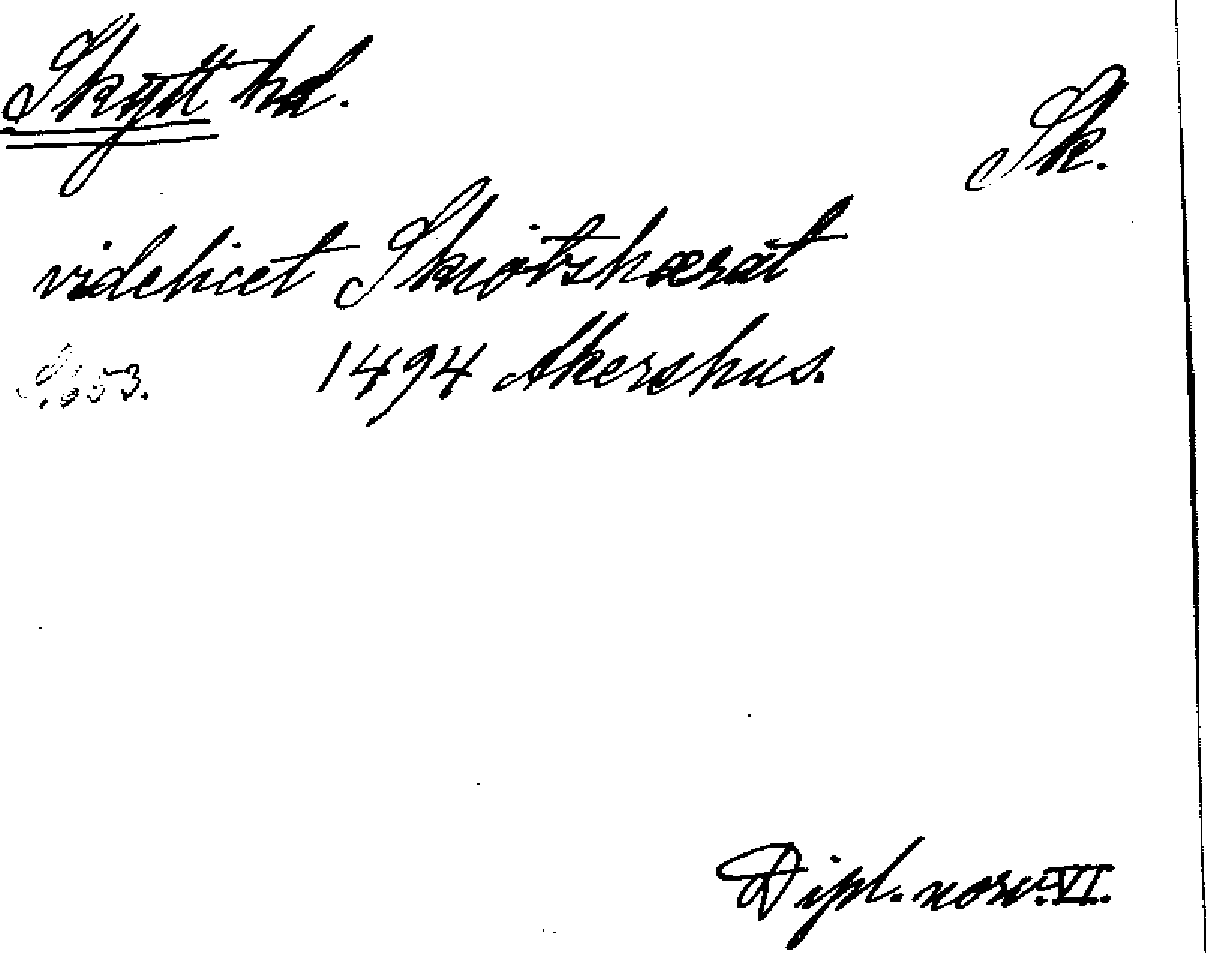 Skytt hd.
Sk.
videlicet Skiötshærat
S. 653. 1494 Akershus.
Dipl. norv. VI.